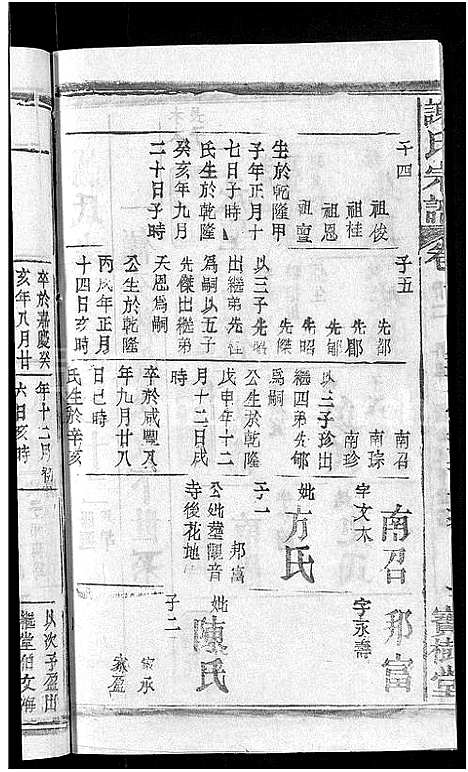 謝氏宗譜
卷
寶樹堂
子四
祖俊
祖桂
祖恩
祖亶
生於乾隆甲
子年正月十
七日子時
氏生於乾隆
癸亥年九月
二十日子時
子五
先都
先郡
先郇
先傑
先昭
以三子先昭
出繼弟先
為嗣以五子
先傑出繼弟
天恩為嗣
公生於乾隆
丙戌年正月
十四日亥時
南召
南琮
南珍
以三子珍出
繼四弟先郇
為嗣
公生於乾隆
戊申年十二
月十二日戌
時
卒於咸豐八
年九月廿八
日巳時
氏生於辛亥
南召
字文木
妣方氏
子一
邦富
公妣葬觀音
寺後花地
邦富
字永壽
妣陳氏
子二
家承
家盈
卒於嘉慶癸
亥年八月廿
年十二月
六日亥時
以次子盈出
繼堂伯文海